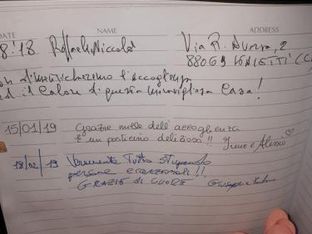 DATE NAME ADDRESS
8:18 Raffaele Niccolò Via R. , 2
88069
dimenticheremo l'accoglienza
ed il calore di questa meravigliosa Casa!
15/01/19 Grazie mille dell'accoglienza
È un posticino delizioso!! Irene e Alessio
/02/19 Veramente tutto stupendo
persone eccezionali!!
GRAZIE DI CUORE Giuseppe e